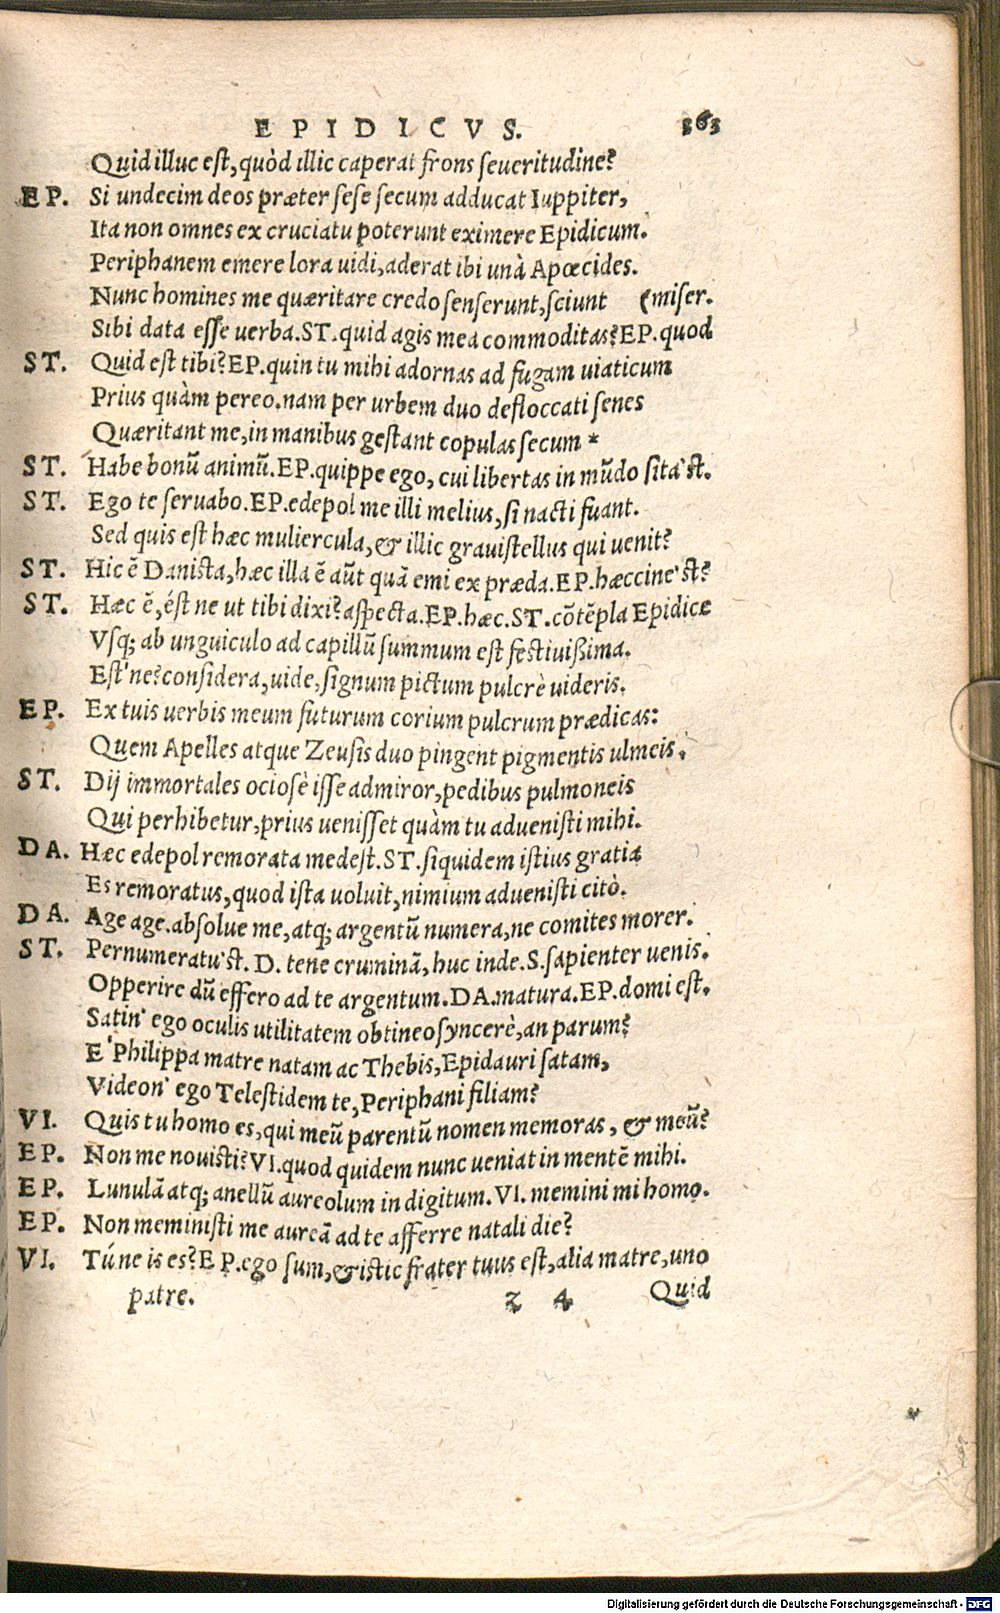 EPIDICVS. 363
Quid illuc est, quòd illic caperat frons seueritudine?
EP. Si undecim deos præter sese secum adducat Iuppiter,
Ita non omnes ex cruciatu poterunt eximere Epidicum.
Periphanem emere lora uidi, aderat ibi unà Apœcides.
Nunc homines me quæritare credo senserunt, sciunt (miser.
Sibi data esse uerba. ST. quid agis mea commoditas? EP. quod
ST. Quid est tibi? EP. quin tu mihi adornas ad fugam uiaticum
Prius quàm pereo. nam per urbem duo defloccati senes
Quæritant me, in manibus gestant copulas secum *
ST. Habe bonũ animũ. EP. quippe ego, cui libertas in mũdo sita'st.
ST. Ego te seruabo. EP. edepol me illi melius, si nacti fuant.
Sed quis est hæc muliercula, & illic grauistellus qui uenit?
ST. Hic ẽ Danista, hæc illa ẽ aũt quã emi ex præda. EP. hæccine'st?
ST. Hæc ẽ, ést ne ut tibi dixi? aspecta. EP. hæc. ST. cõtẽpla Epidice
Vsq; ab unguiculo ad capillũ summum est festiuißima.
Est'ne? considera, uide, signum pictum pulcrè uideris.
EP. Ex tuis uerbis meum futurum corium pulcrum prædicas:
Quem Apelles atque Zeusis duo pingent pigmentis ulmeis.
ST. Dij immortales ociosè isse admiror, pedibus pulmoneis
Qui perhibetur, prius uenisset quàm tu aduenisti mihi.
DA. Hæc edepol remorata medest. ST. siquidem istius gratia
Es remoratus, quod ista uoluit, nimium aduenisti citò.
DA. Age age. absolue me, atq; argentũ numera, ne comites morer.
ST. Pernumeratu'st. D. tene cruminã, huc inde. S. sapienter uenis.
Opperire dũ effero ad te argentum. DA. matura. EP. domi est.
Satin' ego oculis utilitatem obtineo syncerè, an parum?
E' Philippa matre natam ac Thebis, Epidauri satam,
Videon' ego Telestidem te, Periphani filiam?
VI. Quis tu homo es, qui meũ parentũ nomen memoras, & meũ?
EP. Non me nouisti? VI. quod quidem nunc ueniat in mentẽ mihi.
EP. Lunulã atq; anellũ aureolum in digitum. VI. memini mi homo.
EP. Non meministi me aureã ad te afferre natali die?
VI. Túne is es? EP. ego sum, & istic frater tuus est, alia matre, uno
patre. Z 4 Quid
Digitalisierung gefördert durch die Deutsche Forschungsgemeinschaft - DFG